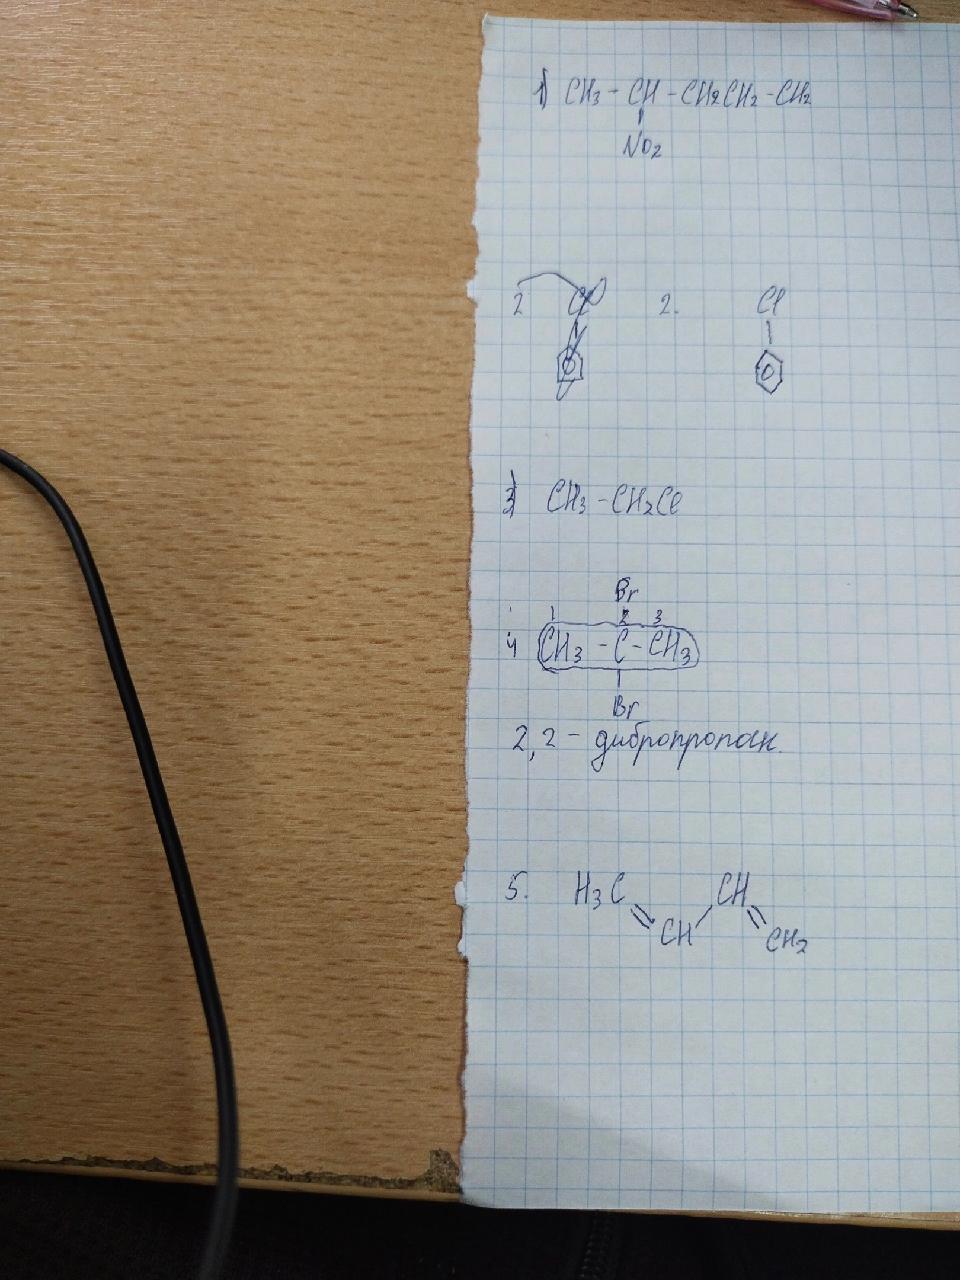 1) CH3 - CH - CH2CH2 - CH2
NO2
2 Cl 2. Cl
3) CH3 - CH2Cl
Br
1 2 3
4 CH3 - C - CH3
Br
2,2 - дибропропан.
5. H3C CH
CH CH2